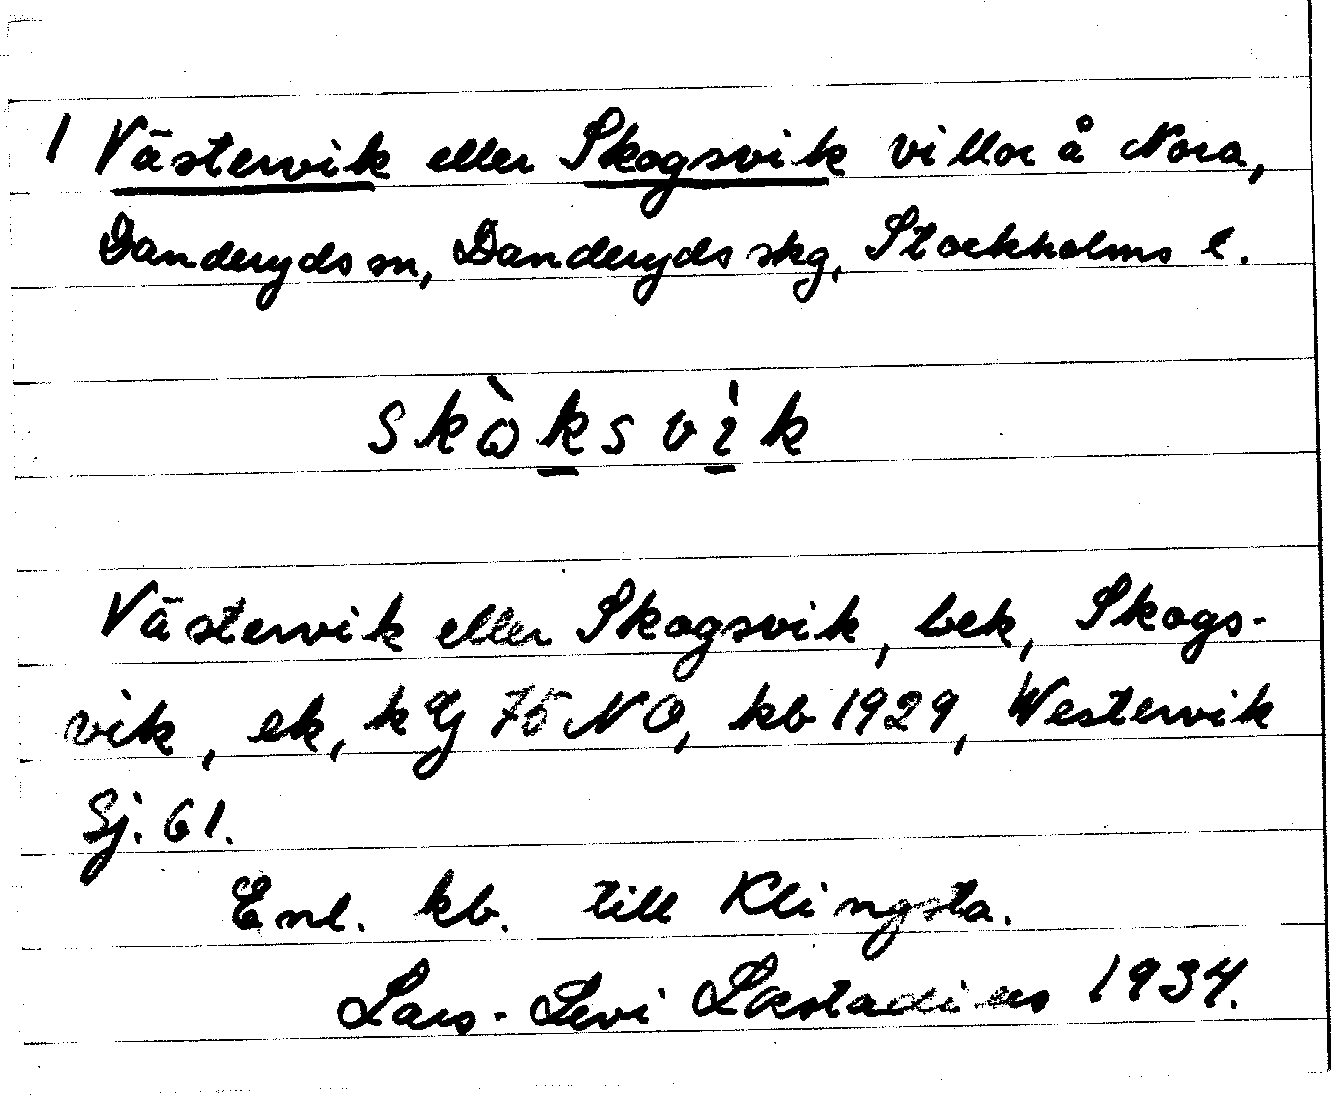 1 Västervik eller Skogsvik villor å Nora,
Danderyds sn, Danderyds skg, Stockholms l.
skὼksvìk
Västervik eller Skogsvik, bek, Skogs-
vik, ek, k Gj 75 NO, kb 1929, Westervik
Sj. 61.
Enl. kb. till Klingsta.
Lars-Levi Læstadius 1934.